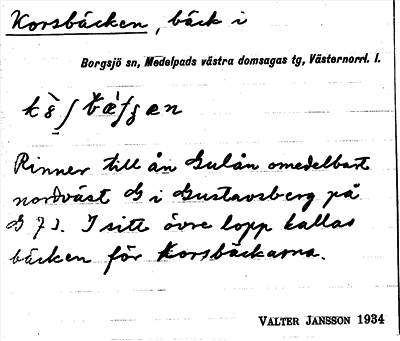 Korsbäcken, bäck i
Borgsjö sn, Medelpads västra domsagas tg, Västernorrl. l.
Rinner till ån Gulån omedelbart
nordväst G i Gustavsberg på
G 7 J. I sitt övre lopp kallas
bäcken för Korsbäckarna.
VALTER JANSSON 1934